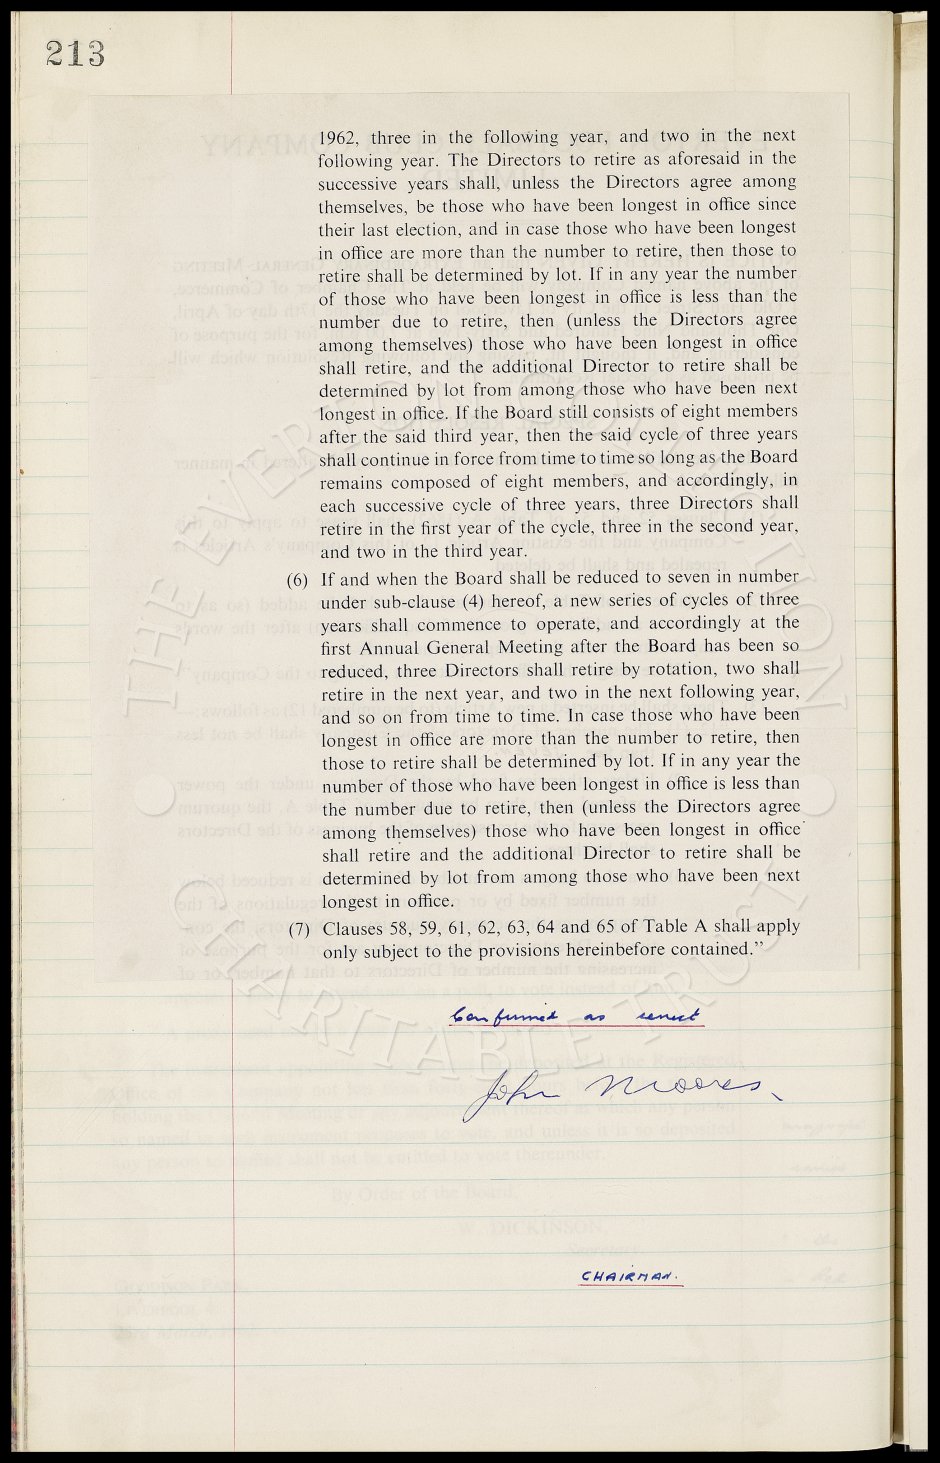 213
1962, three in the following year, and two in the next
following year. The Directors to retire as aforesaid in the
successive years shall, unless the Directors agree among
themselves, be those who have been longest in office since
their last election, and in case those who have been longest
in office are more than the number to retire, then those to
retire shall be determined by lot. If in any year the number
of those who have been longest in office is less than the
number due to retire, then (unless the Directors agree
among themselves) those who have been longest in office
shall retire, and the additional Director to retire shall be
determined by lot from among those who have been next
longest in office. If the Board still consists of eight members
after the said third year, then the said cycle of three years
shall continue in force from time to time so long as the Board
remains composed of eight members, and accordingly, in
each successive cycle of three years, three Directors shall
retire in the first year of the cycle, three in the second year,
and two in the third year.
(6) If and when the Board shall be reduced to seven in number
under sub-clause (4) hereof, a new series of cycles of three
years shall commence to operate, and accordingly at the
first Annual General Meeting after the Board has been so
reduced, three Directors shall retire by rotation, two shall
retire in the next year, and two in the next following year,
and so on from time to time. In case those who have been
longest in office are more than the number to retire, then
those to retire shall be determined by lot. If in any year the
number of those who have been longest in office is less than
the number due to retire, then (unless the Directors agree
among themselves) those who have been longest in office
shall retire and the additional Director to retire shall be
determined by lot from among those who have been next
longest in office.
(7) Clauses 58, 59, 61, 62, 63, 64 and 65 of Table A shall apply
only subject to the provisions hereinbefore contained.”
Confirmed as correct
John Moores
CHAIRMAN.
THE EVERTON COLLECTION
CHARITABLE TRUST